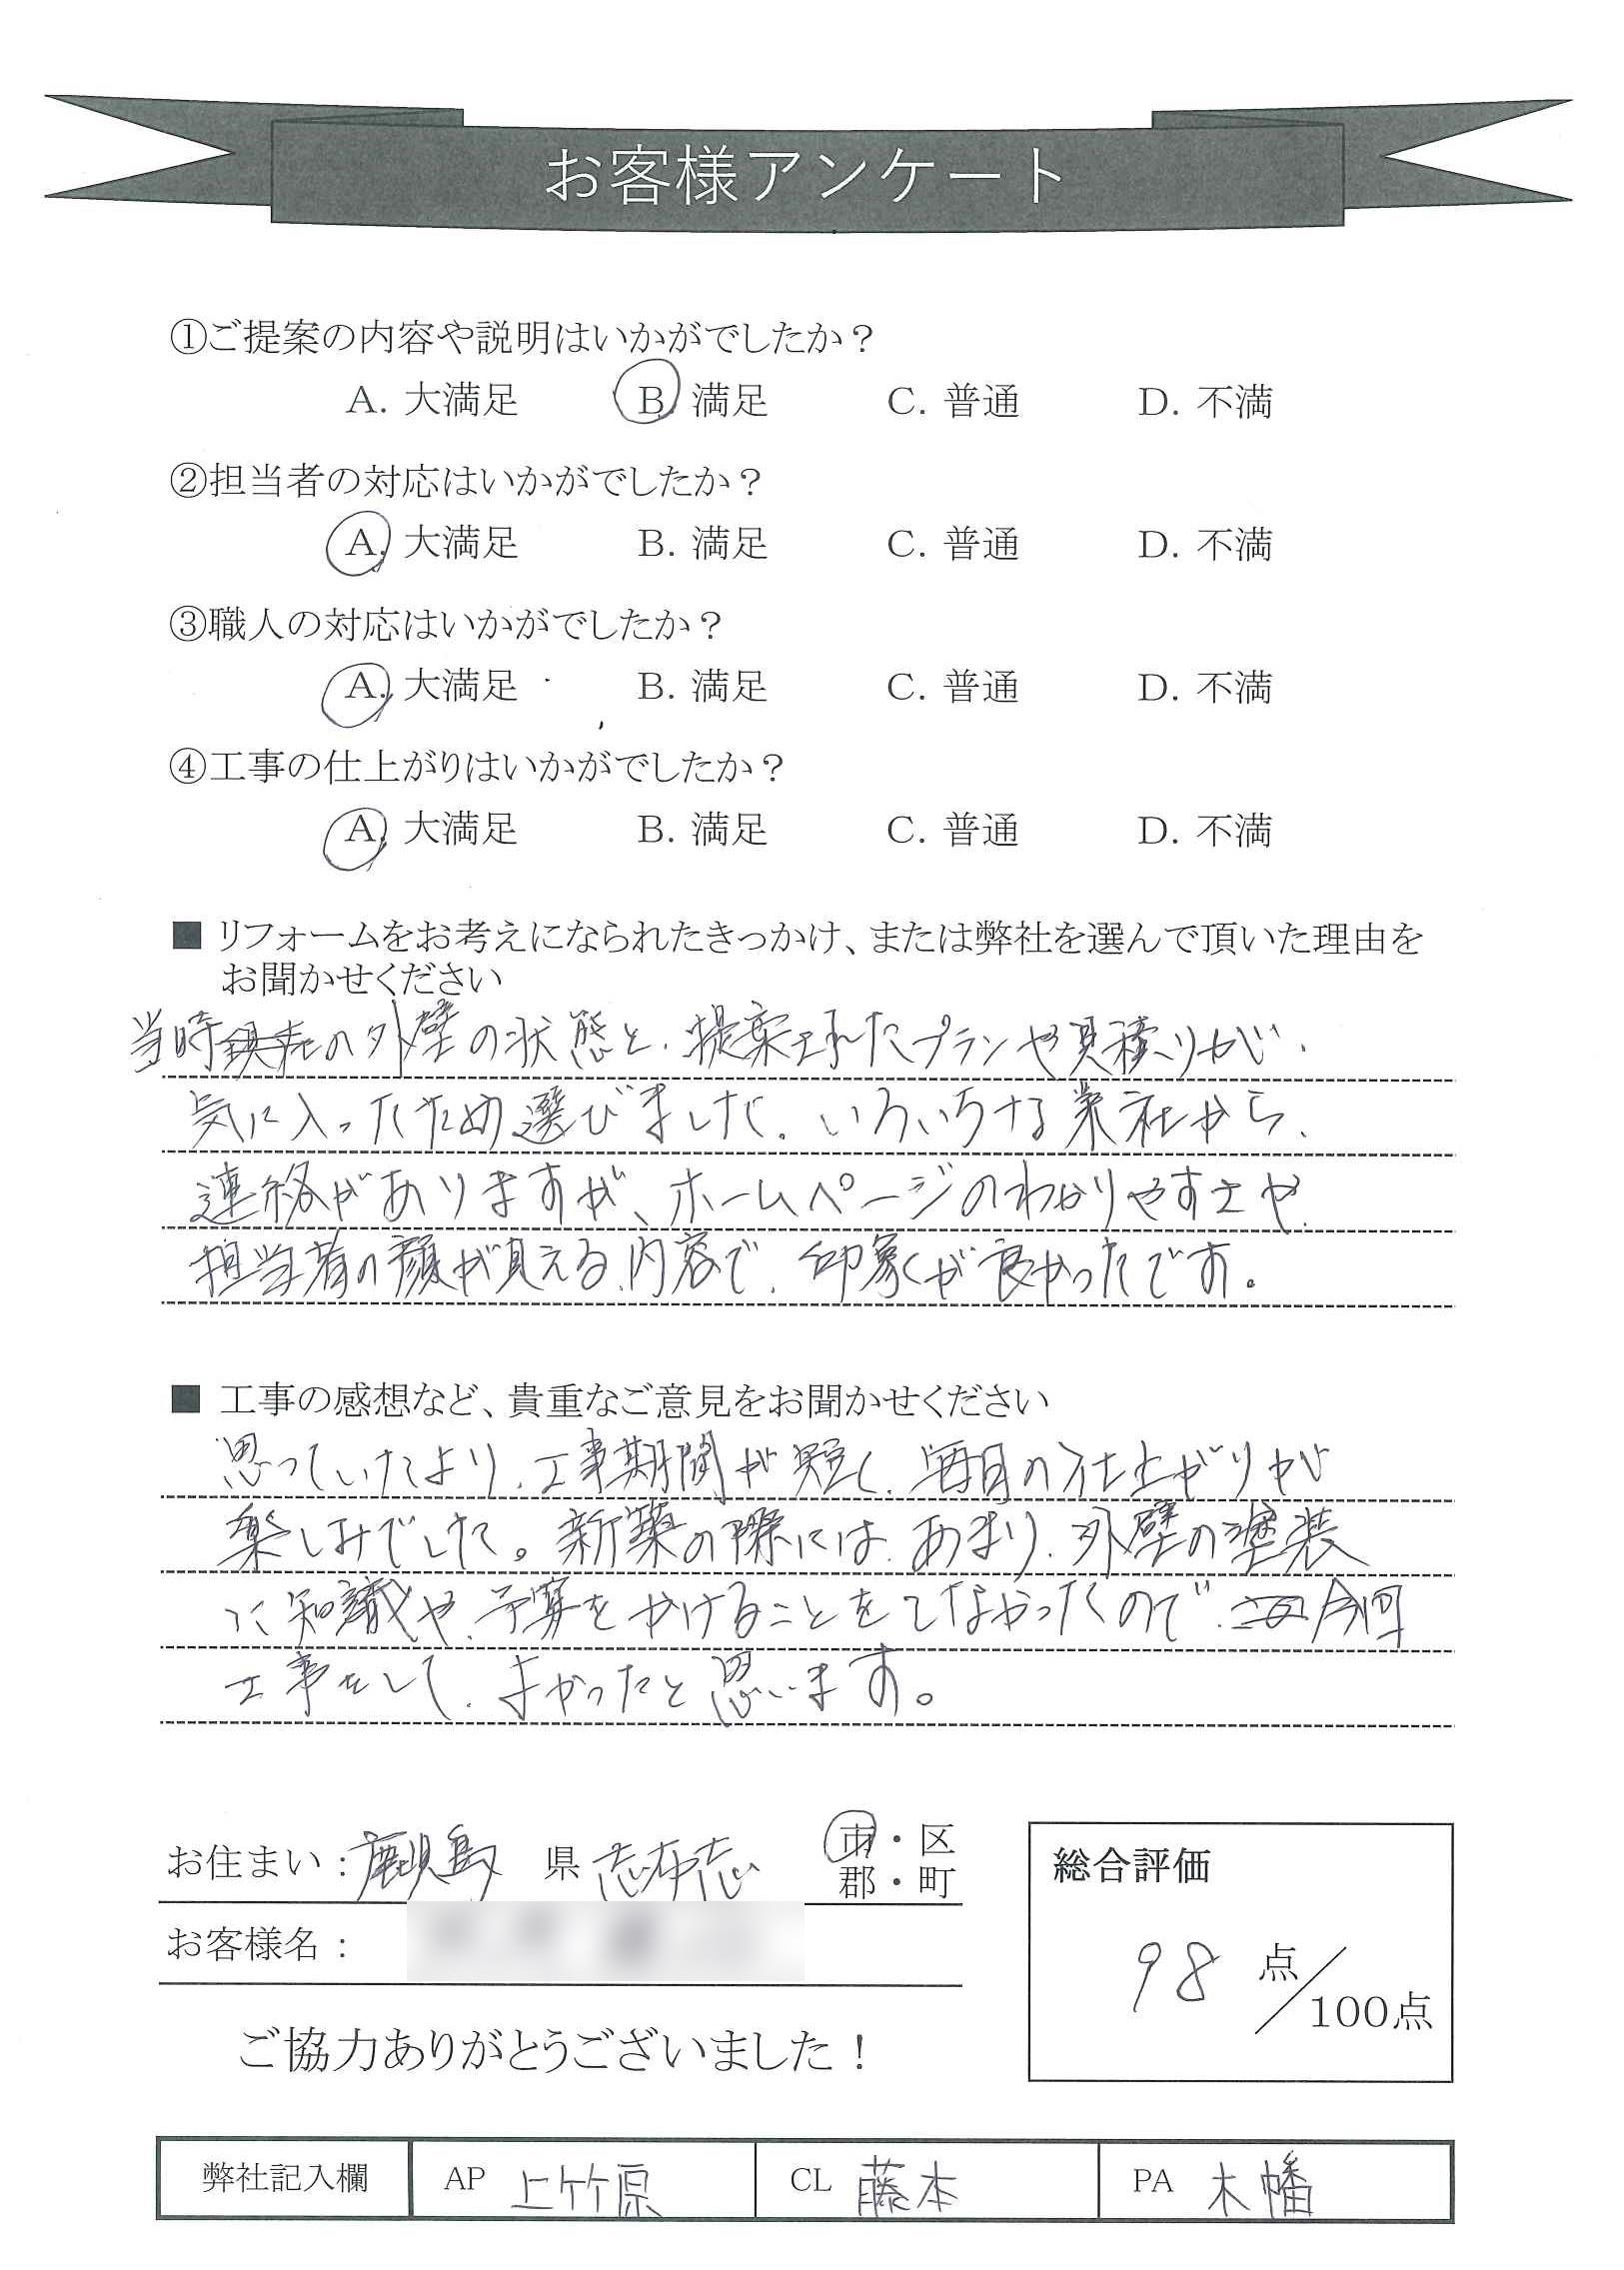 お客様アンケート
①ご提案の内容や説明はいかがでしたか？
A. 大満足 B. 満足 C. 普通 D. 不満
②担当者の対応はいかがでしたか？
A. 大満足 B. 満足 C. 普通 D. 不満
③職人の対応はいかがでしたか？
A. 大満足 B. 満足 C. 普通 D. 不満
④工事の仕上がりはいかがでしたか？
A. 大満足 B. 満足 C. 普通 D. 不満
■ リフォームをお考えになられたきっかけ、または弊社を選んで頂いた理由を
お聞かせください
当時の外壁の状態と、提案されたプランや見積りが、
気に入ったため選びました。いろいろな業社から、
連絡がありますが、ホームページのわかりやすさや、
担当者の顔が見える、内容で、印象が良かったです。
■ 工事の感想など、貴重なご意見をお聞かせください
思っていたより、工事期間が短く、毎日の仕上がりが
楽しみでした。新築の際には、あまり、外壁の塗装
に知識や、予算をかけることをしてなかったので、今回
工事をして、よかったと思います。
お住まい：鹿児島 県 志布志 市・区
郡・町
お客様名：
総合評価
98 点／100点
ご協力ありがとうございました！
弊社記入欄 AP 上竹原 CL 藤本 PA 木幡